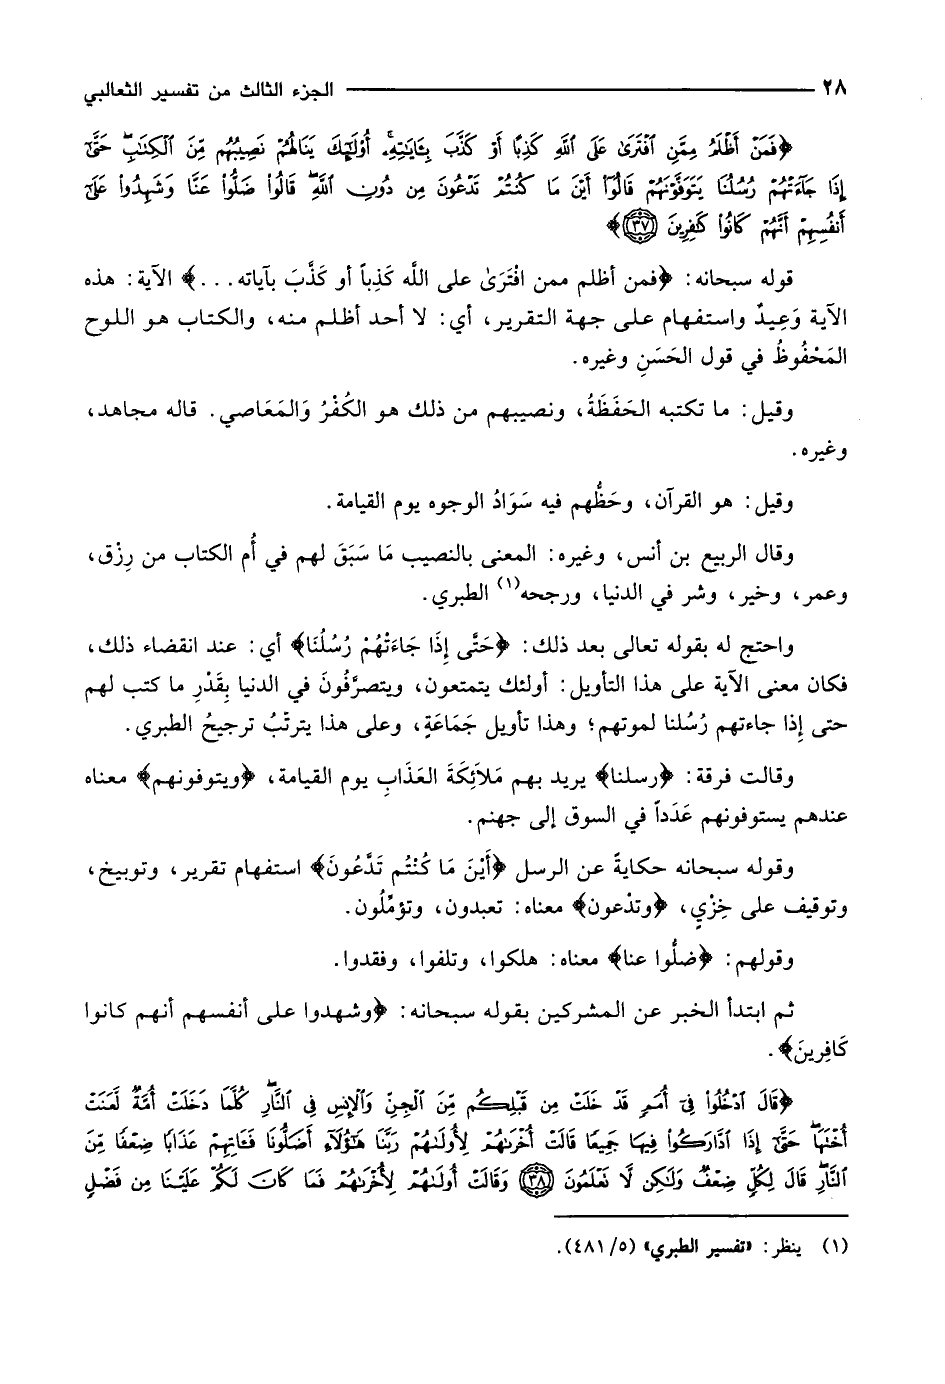 ٢٨ الجزء الثالث من تفسير الثعالبي
﴿فَمَنْ أَظْلَمُ مِمَّنِ ٱفْتَرَىٰ عَلَى ٱللَّهِ كَذِبًا أَوْ كَذَّبَ بِـَٔايَـٰتِهِۦٓ أُوْلَـٰٓئِكَ يَنَالُهُمْ نَصِيبُهُم مِّنَ ٱلْكِتَـٰبِ حَتَّىٰٓ
إِذَا جَآءَتْهُمْ رُسُلُنَا يَتَوَفَّوْنَهُمْ قَالُوٓا۟ أَيْنَ مَا كُنتُمْ تَدْعُونَ مِن دُونِ ٱللَّهِ قَالُوا۟ ضَلُّوا۟ عَنَّا وَشَهِدُوا۟ عَلَىٰٓ
أَنفُسِهِمْ أَنَّهُمْ كَانُوا۟ كَـٰفِرِينَ ٣٧﴾
قوله سبحانه: ﴿فمن أظلم ممن افْتَرَىٰ على اللَّه كَذِباً أو كَذَّبَ بآياته...﴾ الآية: هذه
الآية وَعِيدٌ واستفهام على جهة التقرير، أي: لا أحد أظلم منه، والكتاب هو اللوح
المَحْفُوظُ في قول الحَسَنِ وغيره.
وقيل: ما تكتبه الحَفَظَةُ، ونصيبهم من ذلك هو الكُفْرُ وَالمَعَاصي. قاله مجاهد،
وغيره.
وقيل: هو القرآن، وحَظُّهم فيه سَوَادُ الوجوه يوم القيامة.
وقال الربيع بن أنس، وغيره: المعنى بالنصيب مَا سَبَقَ لهم في أُم الكتاب من رِزْق،
وعمر، وخير، وشر في الدنيا، ورجحه(١) الطبري.
واحتج له بقوله تعالى بعد ذلك: ﴿حَتَّى إِذَا جَاءَتْهُمْ رُسُلُنَا﴾ أي: عند انقضاء ذلك،
فكان معنى الآية على هذا التأويل: أولئك يتمتعون، ويتصرَّفُونَ في الدنيا بِقَدْرِ ما كتب لهم
حتى إِذا جاءتهم رُسُلنا لموتهم؛ وهذا تأويل جَمَاعَةٍ، وعلى هذا يترتّبُ ترجيحُ الطبري.
وقالت فرقة: ﴿رسلنا﴾ يريد بهم مَلاَئِكَةَ العَذَابِ يوم القيامة، ﴿ويتوفونهم﴾ معناه
عندهم يستوفونهم عَدَداً في السوق إلى جهنم.
وقوله سبحانه حكايةً عن الرسل ﴿أَيْنَ مَا كُنْتُم تَدَّعُونَ﴾ استفهام تقرير، وتوبيخ،
وتوقيف على خِزْيٍ، ﴿وتدْعون﴾ معناه: تعبدون، وتؤمِّلُون.
وقولهم: ﴿ضلُّوا عنا﴾ معناه: هلكوا، وتلفوا، وفقدوا.
ثم ابتدأ الخبر عن المشركين بقوله سبحانه: ﴿وشهدوا على أنفسهم أنهم كانوا
كَافِرِينَ﴾.
﴿قَالَ ٱدْخُلُوا۟ فِىٓ أُمَمٍ قَدْ خَلَتْ مِن قَبْلِكُم مِّنَ ٱلْجِنِّ وَٱلْإِنسِ فِى ٱلنَّارِ كُلَّمَا دَخَلَتْ أُمَّةٌ لَّعَنَتْ
أُخْتَهَا حَتَّىٰٓ إِذَا ٱدَّارَكُوا۟ فِيهَا جَمِيعًا قَالَتْ أُخْرَىٰهُمْ لِأُولَىٰهُمْ رَبَّنَا هَـٰٓؤُلَآءِ أَضَلُّونَا فَـَٔاتِهِمْ عَذَابًا ضِعْفًا مِّنَ
ٱلنَّارِ قَالَ لِكُلٍّ ضِعْفٌ وَلَـٰكِن لَّا نَعْلَمُونَ ٣٨ وَقَالَتْ أُولَىٰهُمْ لِأُخْرَىٰهُمْ فَمَا كَانَ لَكُمْ عَلَيْنَا مِن فَضْلٍ
(١) ينظر: «تفسير الطبري» (٥/ ٤٨١).